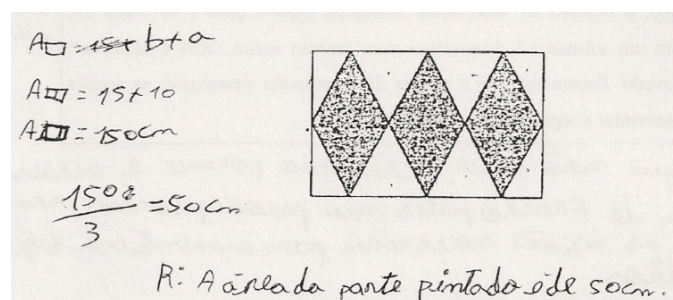 A▭ = b + a
A▭ = 15 + 10
A▭ = 150cm
150/3 = 50cm
R: A área da parte pintado é de 50cm.